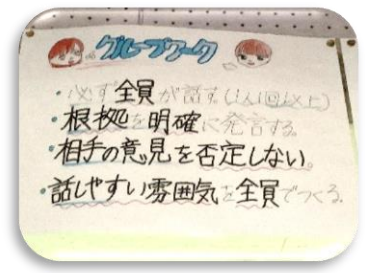 グループワーク
・必ず全員が話す(1人1回以上)
・根拠を明確に発言する。
・相手の意見を否定しない。
・話しやすい雰囲気を全員でつくる。